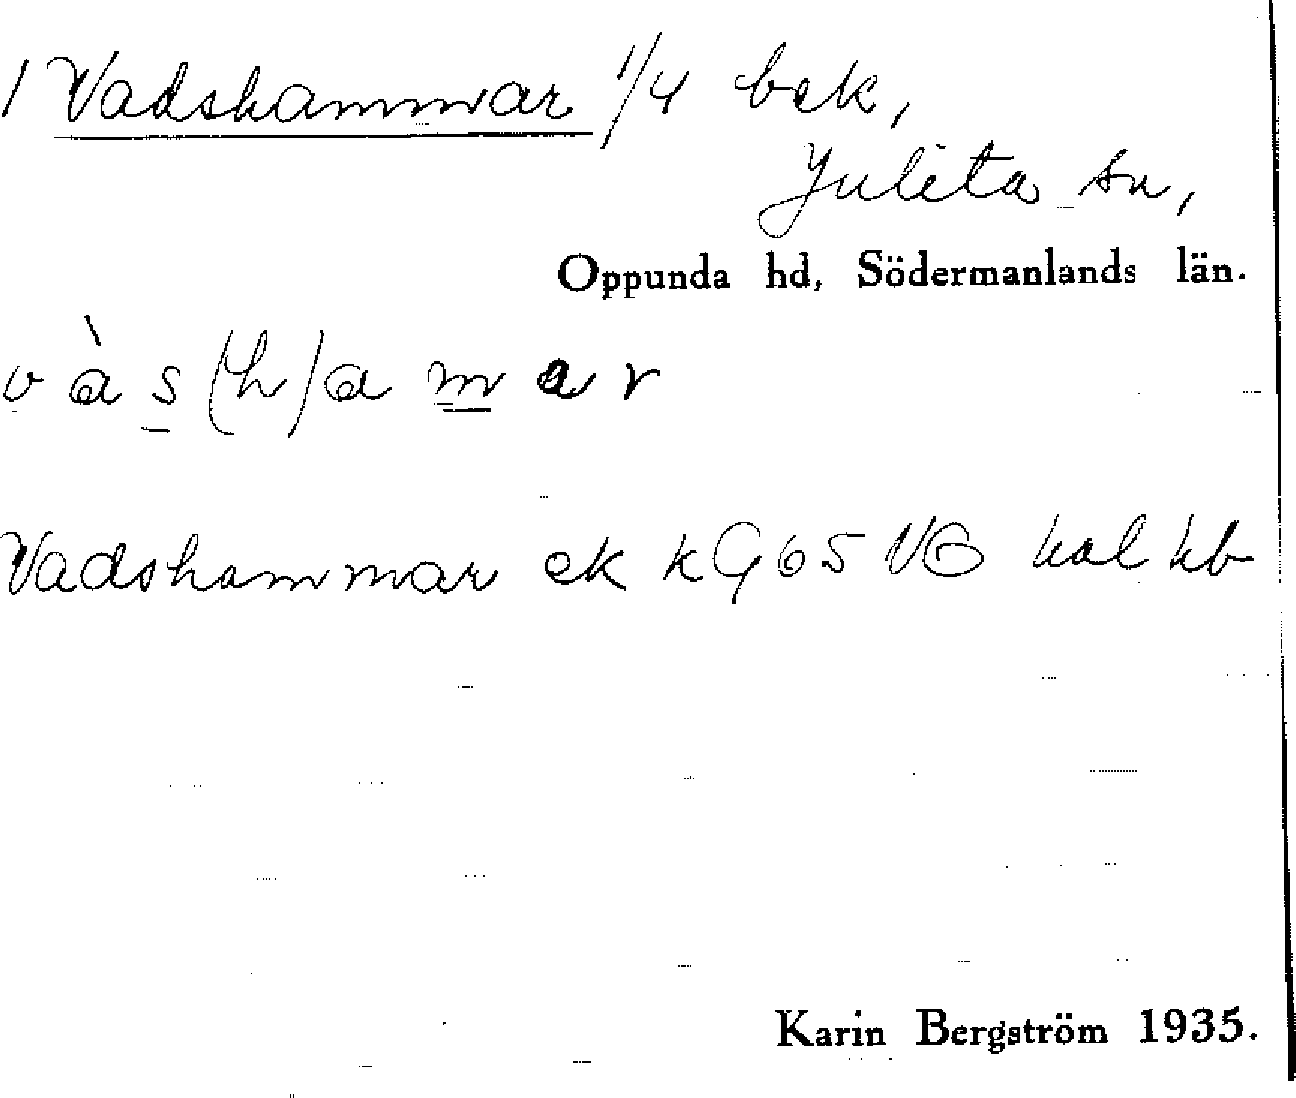 1 Vadshammar 1/4 bek,
Julita sn,
Oppunda hd, Södermanlands län.
v à s (h) a m a r
Vadshammar ek k G 65 VB hal kb
Karin Bergström 1935.